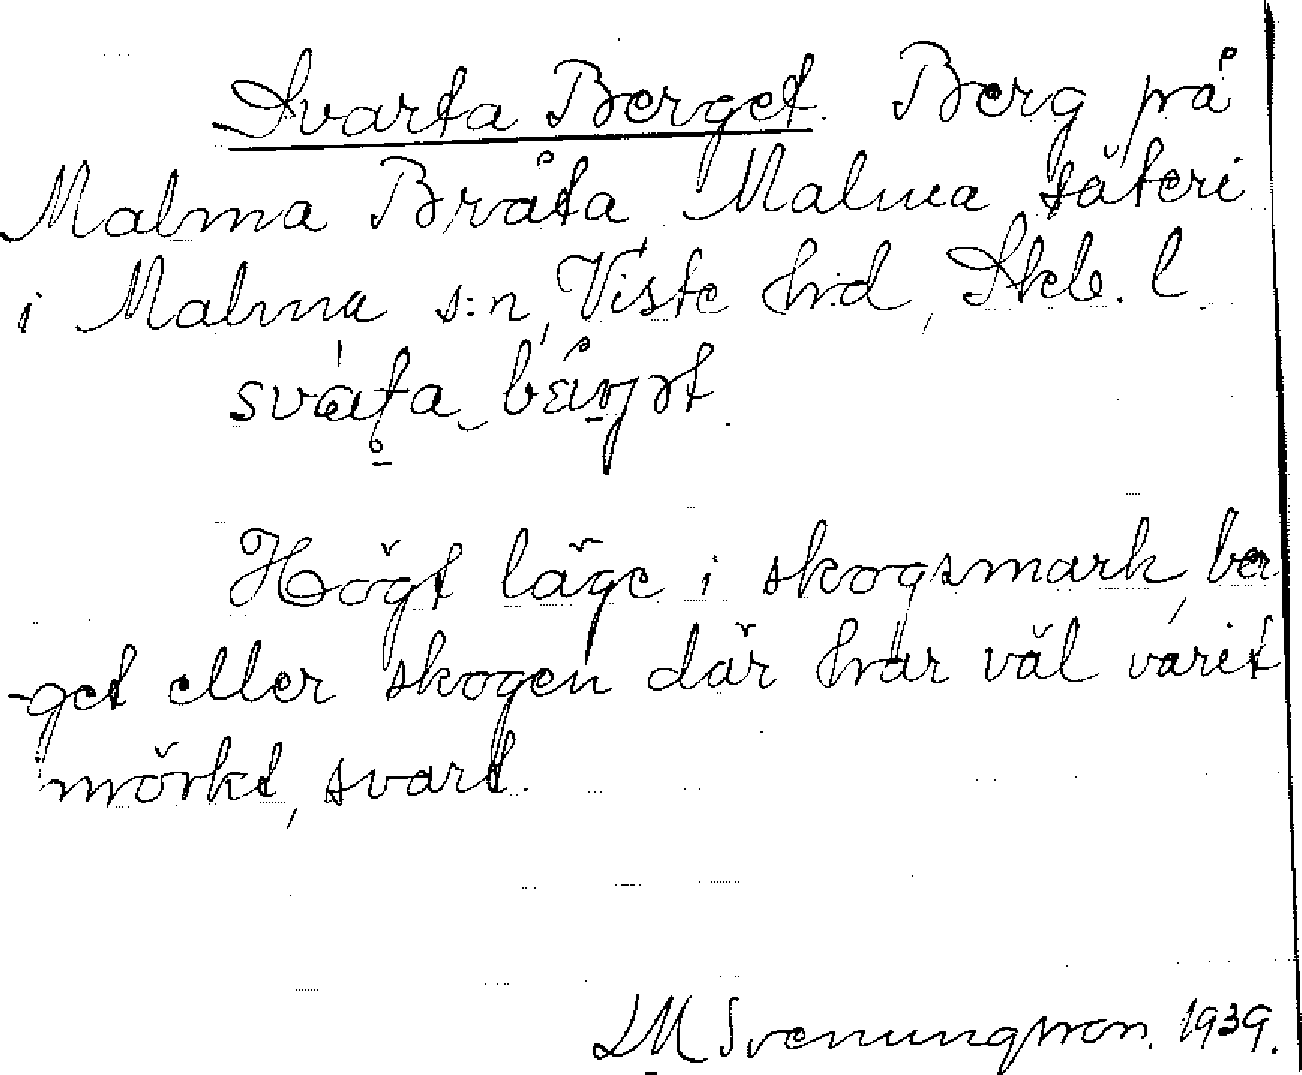 Svarta Berget. Berg på
Malma Bråta Malma säteri
i Malma s:n, Viste hd, Skb. l.
Högt läge i skogsmark, ber
-get eller skogen där har väl varit
mörkt, svart.
LM Svenungsson. 1939.